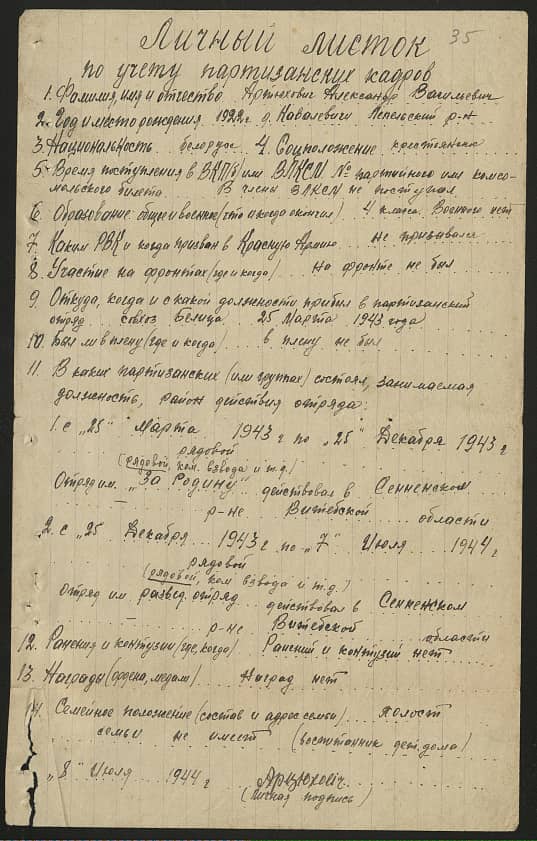 35
Личный листок
по учету партизанских кадров
1. Фамилия, имя и отчество Артюхович Александр Васильевич
2. Год и место рождения 1922 г д. Ковалевичи Лепельский р-н
3. Национальность белорус 4. Соцположение крестьянин
5. Время поступления в ВКП(б) или ВЛКСМ № партийного или комсо-
мольского билета В члены ВЛКСМ не поступал
6. Образование общее и военное (что и когда окончил) 4 класса, Военного нет
7. Каким РВК и когда призван в Красную Армию не призывался
8. Участие на фронтах (где и когда) на фронте не был
9. Откуда, когда и с какой должности прибыл в партизанский
отряд совхоз Белица 25 Марта 1943 года
10. Был ли в плену (где и когда) в плену не был
11. В каких партизанских (или группах) состоял, занимаемая
должность, район действия отряда:
1. с „25" Марта 1943 г по „25" Декабря 1943 г
рядовой
(рядовой, ком. взвода и т.д.)
Отряд им. „За Родину" действовал в Сенненском
р-не Витебской области
2. с „25 Декабря 1943 г по „7" Июля 1944 г
рядовой
(рядовой, ком взвода и т.д.)
Отряд им развед. отряд действовал в Сенненском
р-не Витебской области
12. Ранения и контузии (где, когда) Ранений и контузий нет
13. Награды (ордена, медали) Наград нет
14. Семейное положение (состав и адрес семьи) холост
семьи не имеет (воспитанник дет. дома)
„8" Июля 1944 г Артюхович
(личная подпись)